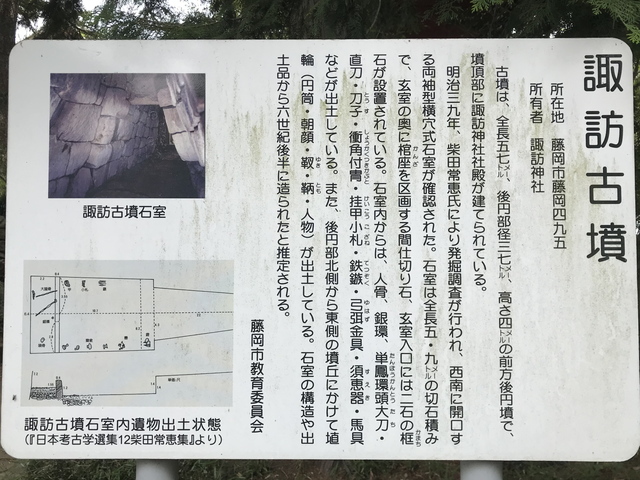 諏訪古墳
所在地　藤岡市藤岡四九五
所有者　諏訪神社
古墳は、全長五七メートル、後円部径三七メートル、高さ四メートルの前方後円墳で、
墳頂部に諏訪神社社殿が建てられている。
明治三九年、柴田常恵氏により発掘調査が行われ、西南に開口す
る両袖型横穴式石室が確認された。石室は全長五・九メートルの切石積み
で、玄室の奥に棺座を区画する間仕切り石、玄室入口には二石の框
石が設置されている。石室内からは、人骨、銀環、単鳳環頭大刀・
直刀・刀子・衝角付冑・挂甲小札・鉄鏃・弓弭金具・須恵器・馬具
などが出土している。また、後円部北側から東側の墳丘にかけて埴
輪（円筒・朝顔・靫・鞆・人物）が出土している。石室の構造や出
土品から六世紀後半に造られたと推定される。
藤岡市教育委員会
諏訪古墳石室
諏訪古墳石室内遺物出土状態
（『日本考古学選集12柴田常恵集』より）